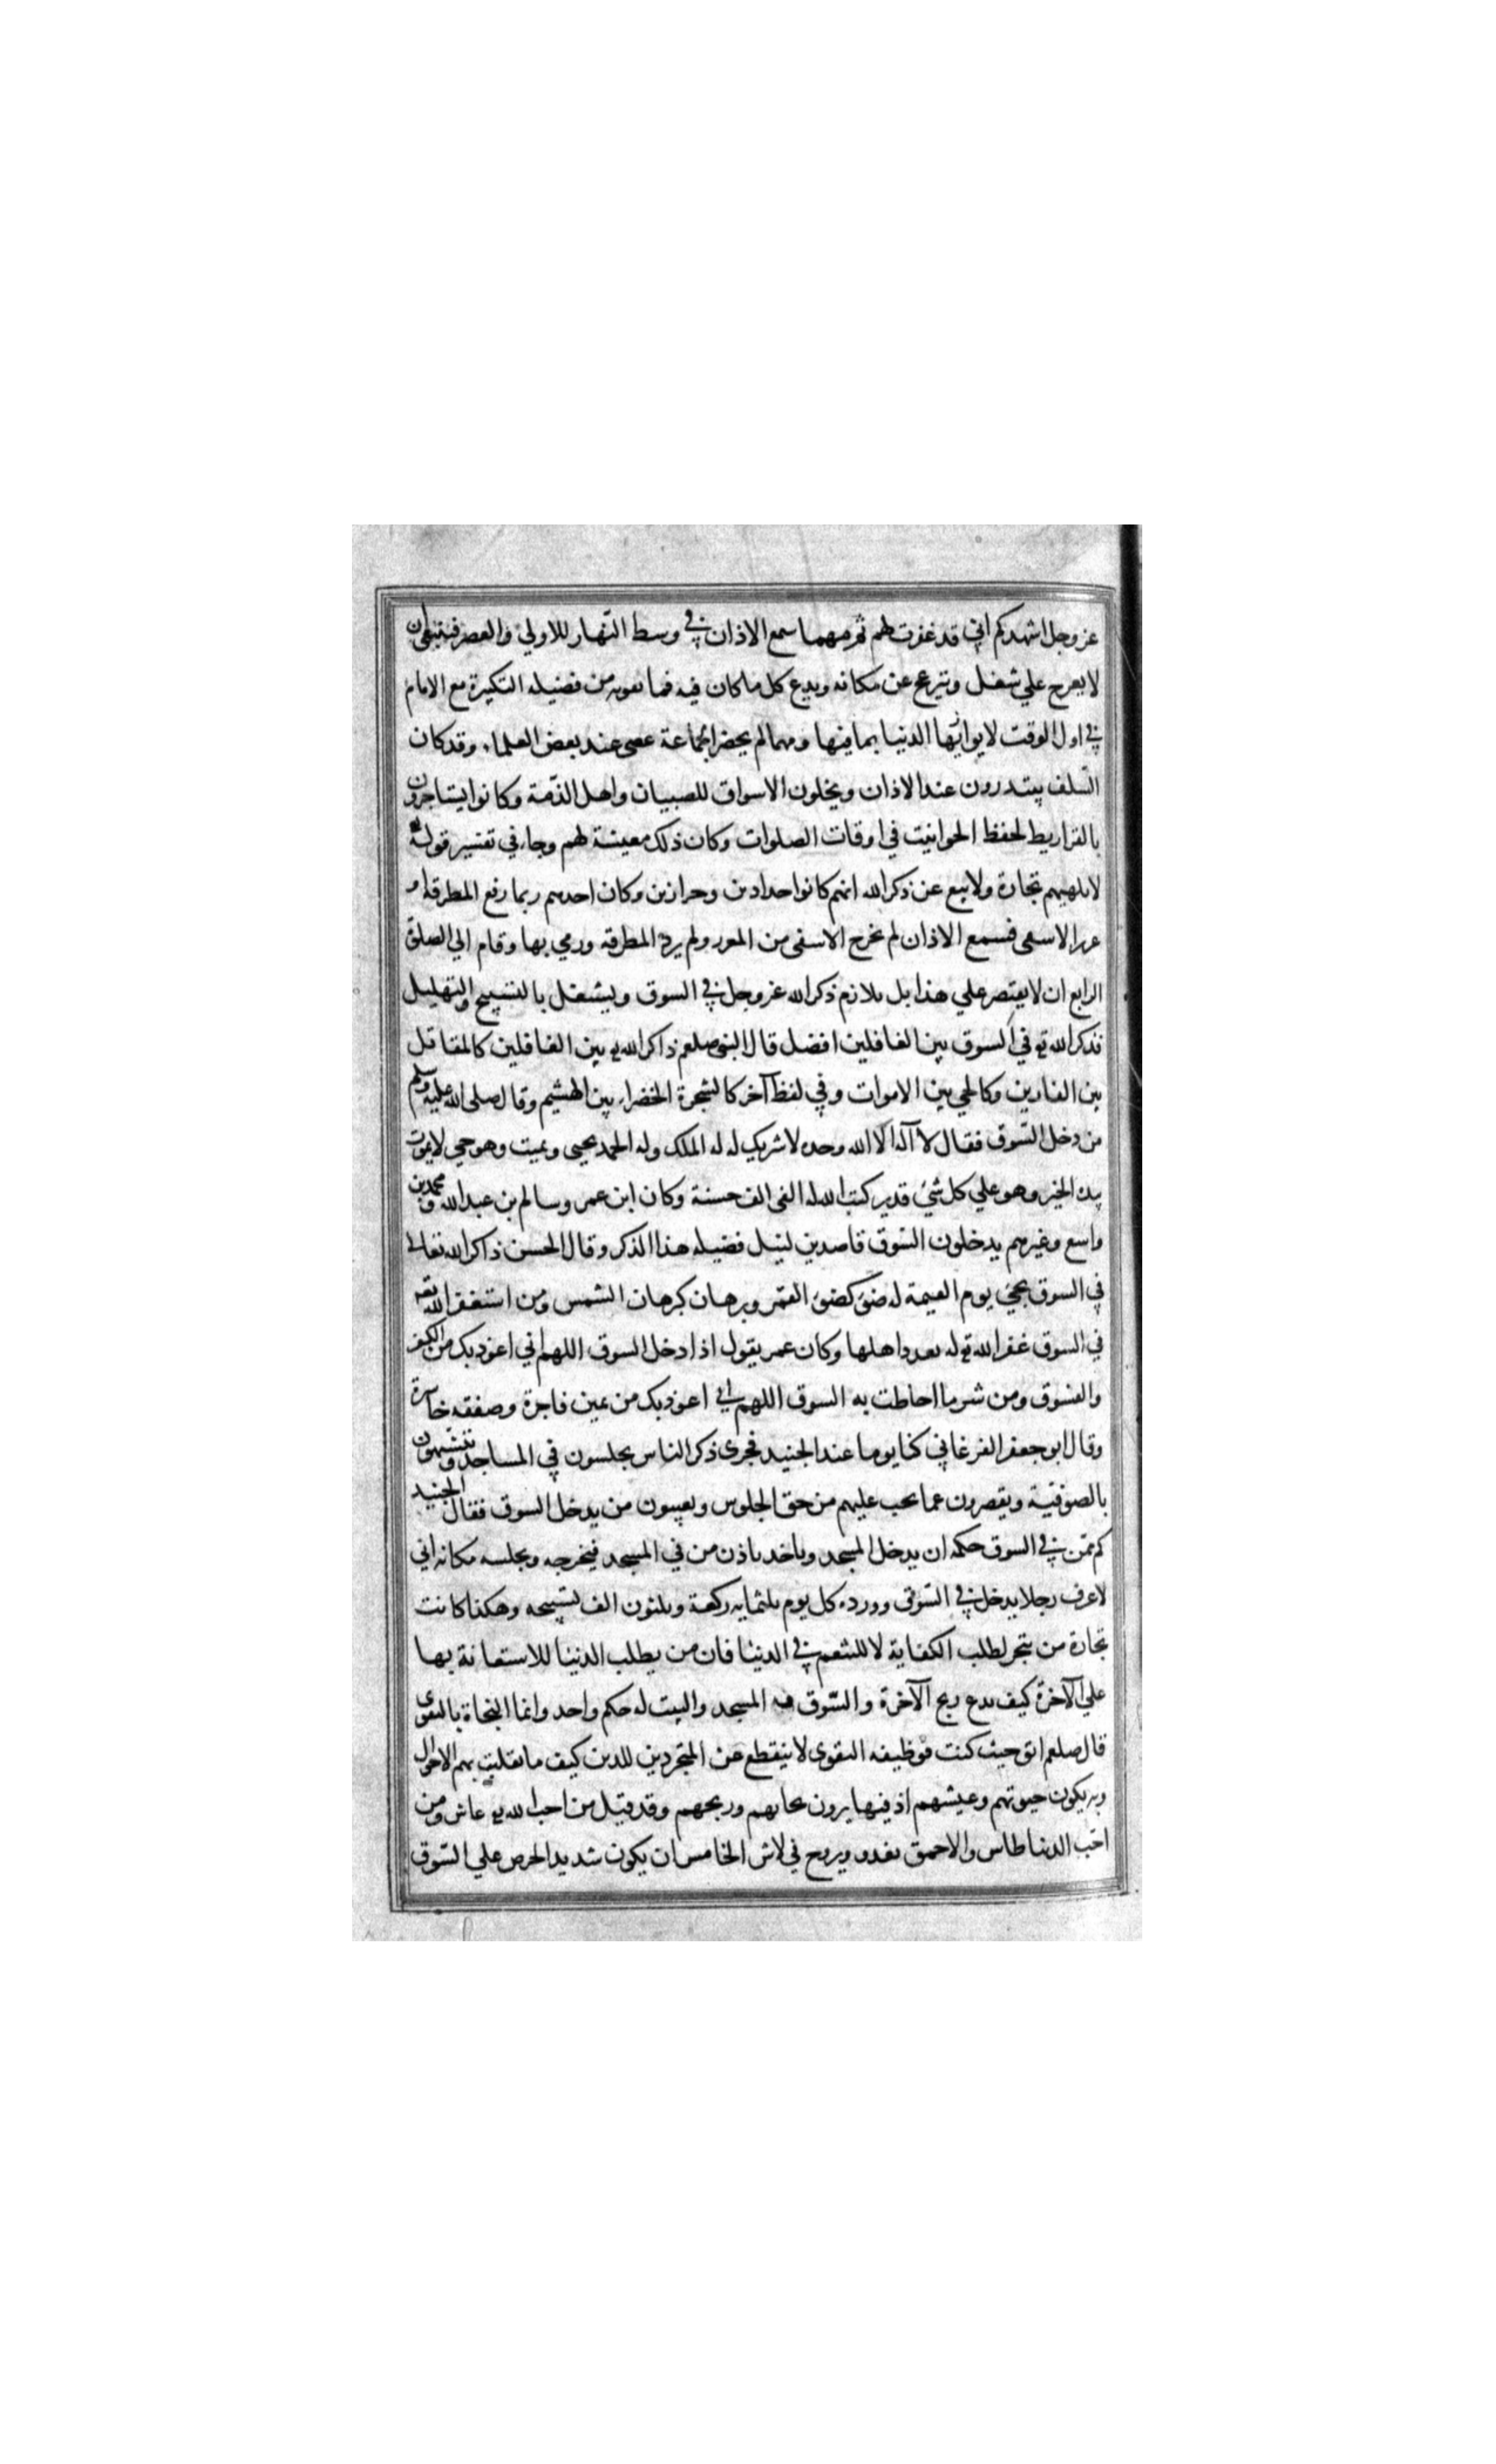 عز وجل اشهدكم اني قد غفرت لهم ثم مهما سمع الاذان في وسط النهار للاولي والعصر فينبغي ان
لا يعرج علي شغل وينزعج عن مكانه ويدع كل ما كان فيه فما يفوته من فضيله التكبيرة مع الامام
في اول الوقت لا يوازيها الدنيا بما فيها ومهما لم يحضر الجماعة عصى عند بعض العلماء وقد كان
السلف يبتدرون عند الاذان ويخلون الاسواق للصبيان واهل الذمة وكانوا يستاجرون
بالقراريط لحفظ الحوانيت في اوقات الصلوات وكان ذلك معيشة لهم وجاء في تفسير قوله
لا تلهيهم تجارة ولا بيع عن ذكر الله انهم كانوا حدادين وخرازين وكان احدهم ربما رفع المطرقه او
غرز الاسفى فسمع الاذان لم يخرج الاسفى من المغرز ولم يرد المطرقه ورمي بها وقام الي الصلوة
الرابع ان لا يقتصر علي هذا بل يلازم ذكر الله عز وجل في السوق ويشتغل بالتسبيح والتهليل
فذكر الله تع في السوق بين الغافلين افضل قال النبي صلعم ذاكر الله تع بين الغافلين كالمقاتل
بين الفارين وكالحي بين الاموات وفي لفظ آخر كالشجرة الخضراء بين الهشيم وقال صلى الله عليه وسلم
من دخل السوق فقال لا آله الا الله وحده لا شريك له له الملك وله الحمد يحيى ويميت وهو حي لا يموت
بيده الخير وهو علي كل شيء قدير كتب الله له الفي الف حسنة وكان ابن عمر وسالم بن عبد الله ومحمد بن
واسع وغيرهم يدخلون السوق قاصدين لنيل فضيله هذا الذكر وقال الحسن ذاكر الله تعالى
في السوق يجيء يوم القيمة له ضوء كضوء القمر وبرهان كبرهان الشمس ومن استغفر الله تع
في السوق غفر الله تع له بعدد اهلها وكان عمر يقول اذا دخل السوق اللهم اني اعوذ بك من الكفر
والفسوق ومن شر ما احاطت به السوق اللهم اني اعوذ بك من يمين فاجرة وصفقه خاسرة
وقال ابو جعفر الفرغاني كنا يوما عند الجنيد فجرى ذكر الناس يجلسون في المساجد ويتشبهون
بالصوفية ويقصرون عما يجب عليهم من حق الجلوس ويعيبون من يدخل السوق فقال الجنيد
كم ممن في السوق حكمه ان يدخل المسجد وياخذ باذن من في المسجد فيخرجه ويجلسه مكانه اني
لاعرف رجلا يدخل في السوق وورده كل يوم ثلثمايه ركعة وثلثون الف تسبيحه وهكذا كانت
تجارة من يتجر لطلب الكفاية لا للتنعم في الدنيا فان من يطلب الدنيا للاستعانة بها
علي الآخرة كيف يدع ربح الآخرة والسوق المسجد والبيت له حكم واحد وانما النجاة بالتقوى
قال صلعم اتق حيث كنت فوظيفه التقوى لا ينقطع عن المتجردين للدين كيف ما تقلبت بهم الاحوال
وبه يكون حيوتهم وعيشهم اذ فيها يرون تجارتهم وربحهم وقد قيل من احب الله تع عاش ومن
احب الدنيا طاش والاحمق يغدو ويروح في لاش الخامس ان يكون شديد الحرص علي السوق